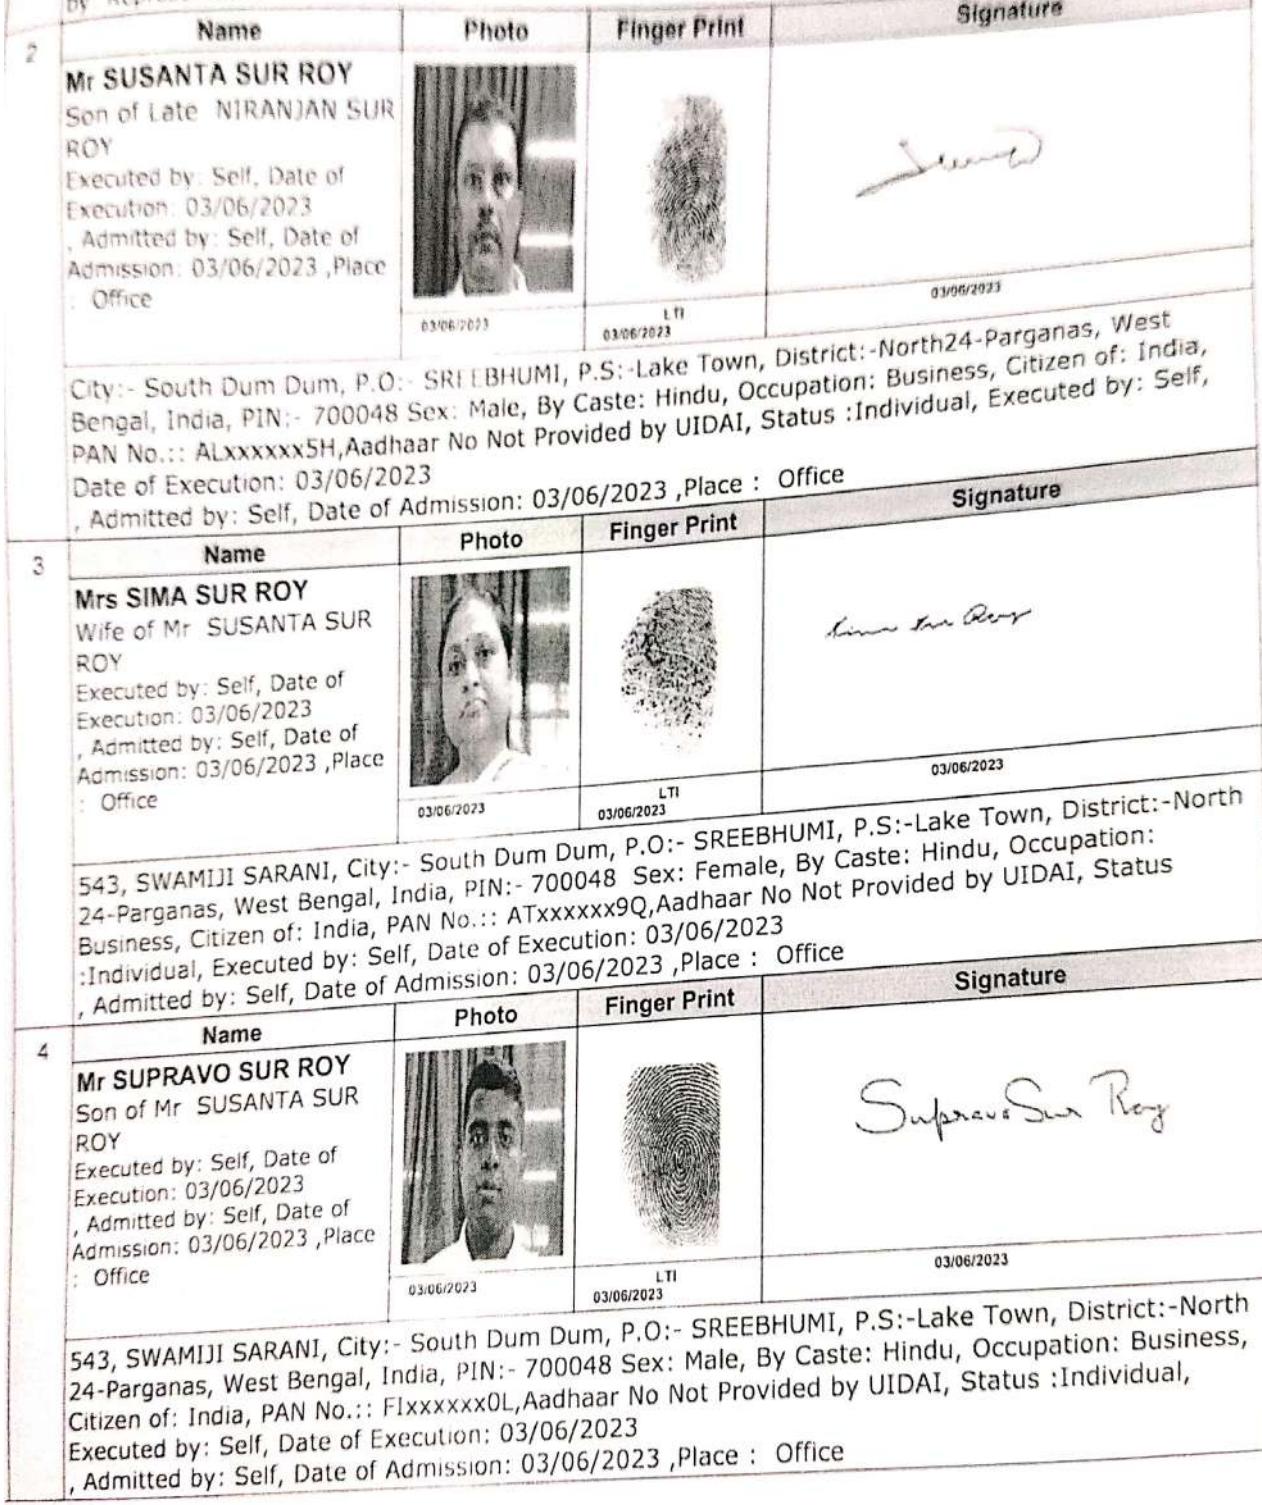 by
Name Photo Finger Print Signature
2
Mr SUSANTA SUR ROY
Son of Late NIRANJAN SUR
ROY
Executed by: Self, Date of
Execution: 03/06/2023
, Admitted by: Self, Date of
Admission: 03/06/2023 ,Place
: Office
03/06/2023
LTI
03/06/2023
03/06/2023
City:- South Dum Dum, P.O:- SREEBHUMI, P.S:-Lake Town, District:-North24-Parganas, West
Bengal, India, PIN:- 700048 Sex: Male, By Caste: Hindu, Occupation: Business, Citizen of: India,
PAN No.:: ALxxxxxx5H,Aadhaar No Not Provided by UIDAI, Status :Individual, Executed by: Self,
Date of Execution: 03/06/2023
, Admitted by: Self, Date of Admission: 03/06/2023 ,Place : Office
Name Photo Finger Print Signature
3
Mrs SIMA SUR ROY
Wife of Mr SUSANTA SUR
ROY
Executed by: Self, Date of
Execution: 03/06/2023
, Admitted by: Self, Date of
Admission: 03/06/2023 ,Place
: Office
Sima Sur Roy
03/06/2023
LTI
03/06/2023
03/06/2023
543, SWAMIJI SARANI, City:- South Dum Dum, P.O:- SREEBHUMI, P.S:-Lake Town, District:-North
24-Parganas, West Bengal, India, PIN:- 700048 Sex: Female, By Caste: Hindu, Occupation:
Business, Citizen of: India, PAN No.:: ATxxxxxx9Q,Aadhaar No Not Provided by UIDAI, Status
:Individual, Executed by: Self, Date of Execution: 03/06/2023
, Admitted by: Self, Date of Admission: 03/06/2023 ,Place : Office
Name Photo Finger Print Signature
4
Mr SUPRAVO SUR ROY
Son of Mr SUSANTA SUR
ROY
Executed by: Self, Date of
Execution: 03/06/2023
, Admitted by: Self, Date of
Admission: 03/06/2023 ,Place
: Office
Supravo Sur Roy
03/06/2023
LTI
03/06/2023
03/06/2023
543, SWAMIJI SARANI, City:- South Dum Dum, P.O:- SREEBHUMI, P.S:-Lake Town, District:-North
24-Parganas, West Bengal, India, PIN:- 700048 Sex: Male, By Caste: Hindu, Occupation: Business,
Citizen of: India, PAN No.:: FIxxxxxx0L,Aadhaar No Not Provided by UIDAI, Status :Individual,
Executed by: Self, Date of Execution: 03/06/2023
, Admitted by: Self, Date of Admission: 03/06/2023 ,Place : Office